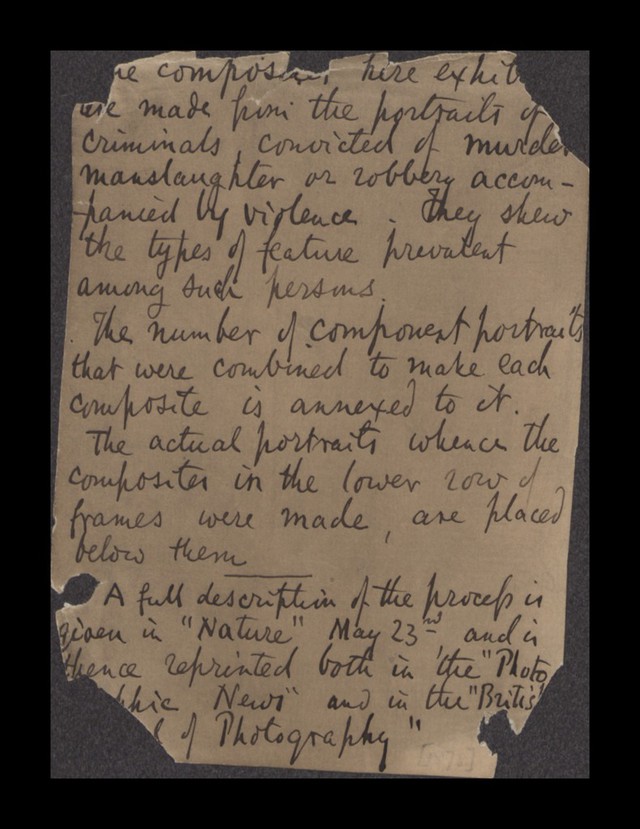 he composites here exhib
are made from the portraits of
criminals, convicted of murder
manslaughter or robbery accom-
panied by violence. They shew
the types of feature prevalent
among such persons.
The number of component portraits
that were combined to make each
composite is annexed to it.
The actual portraits whence the
composites in the lower row of
frames were made, are placed
below them
A full description of the process is
given in "Nature" May 23rd, and is
thence reprinted both in the "Photo
phic News" and in the "Britis
l of Photography"